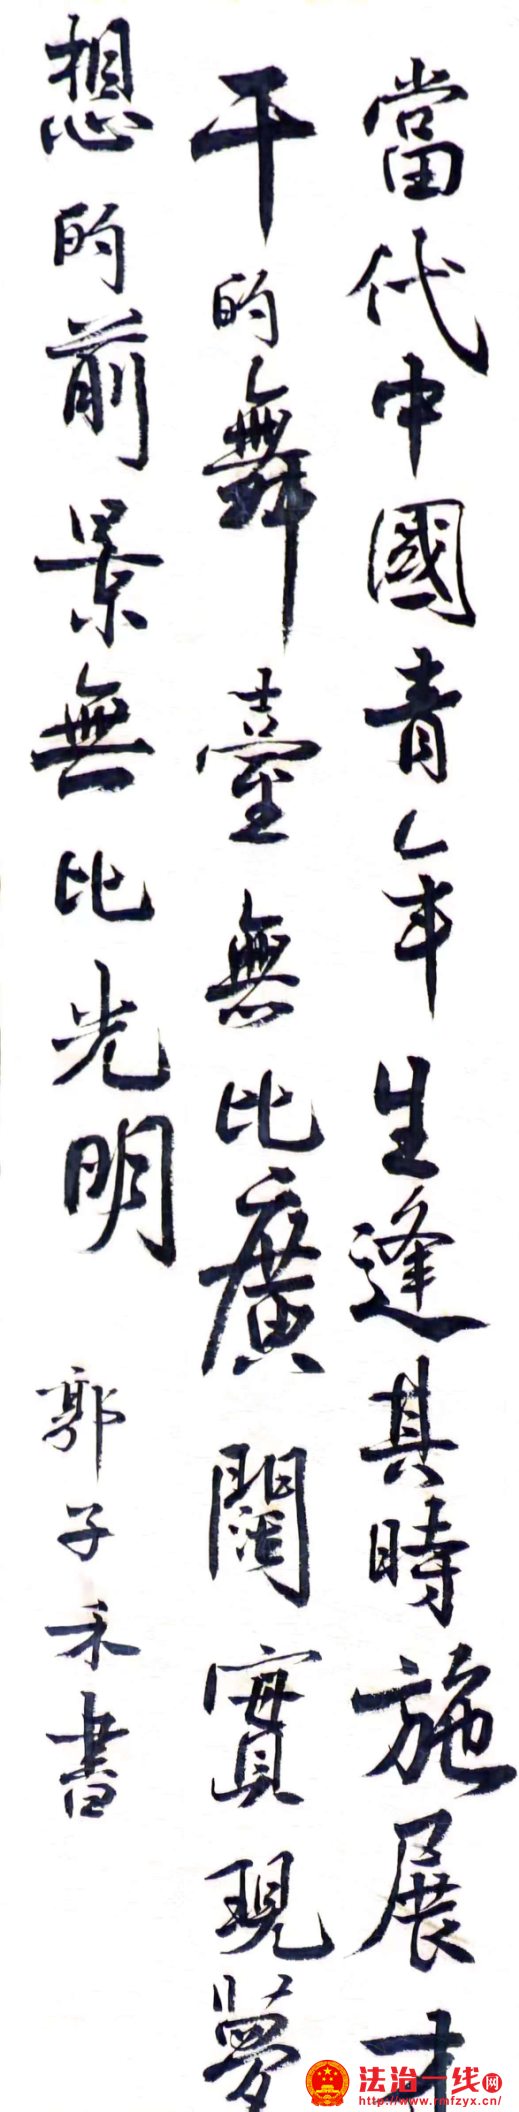 當代中國青年生逢其時施展才
干的舞臺無比廣闊實現夢
想的前景無比光明
郭子禾書
法治一线网
http://www.rmfzyx.cn/